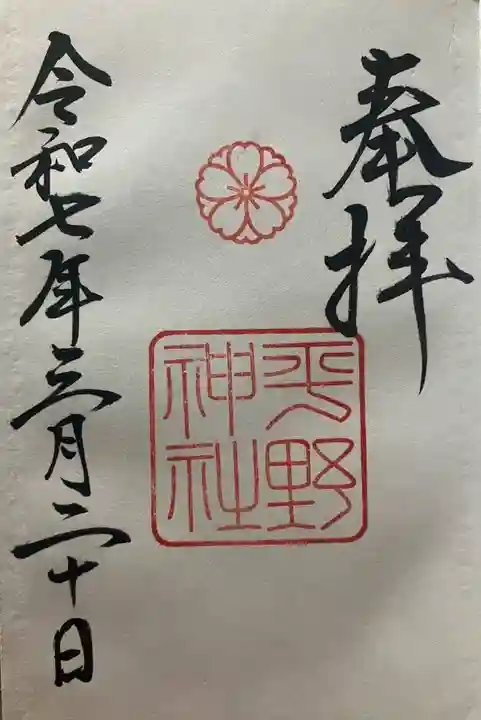 奉拝
平野
神社
令和七年三月二十日